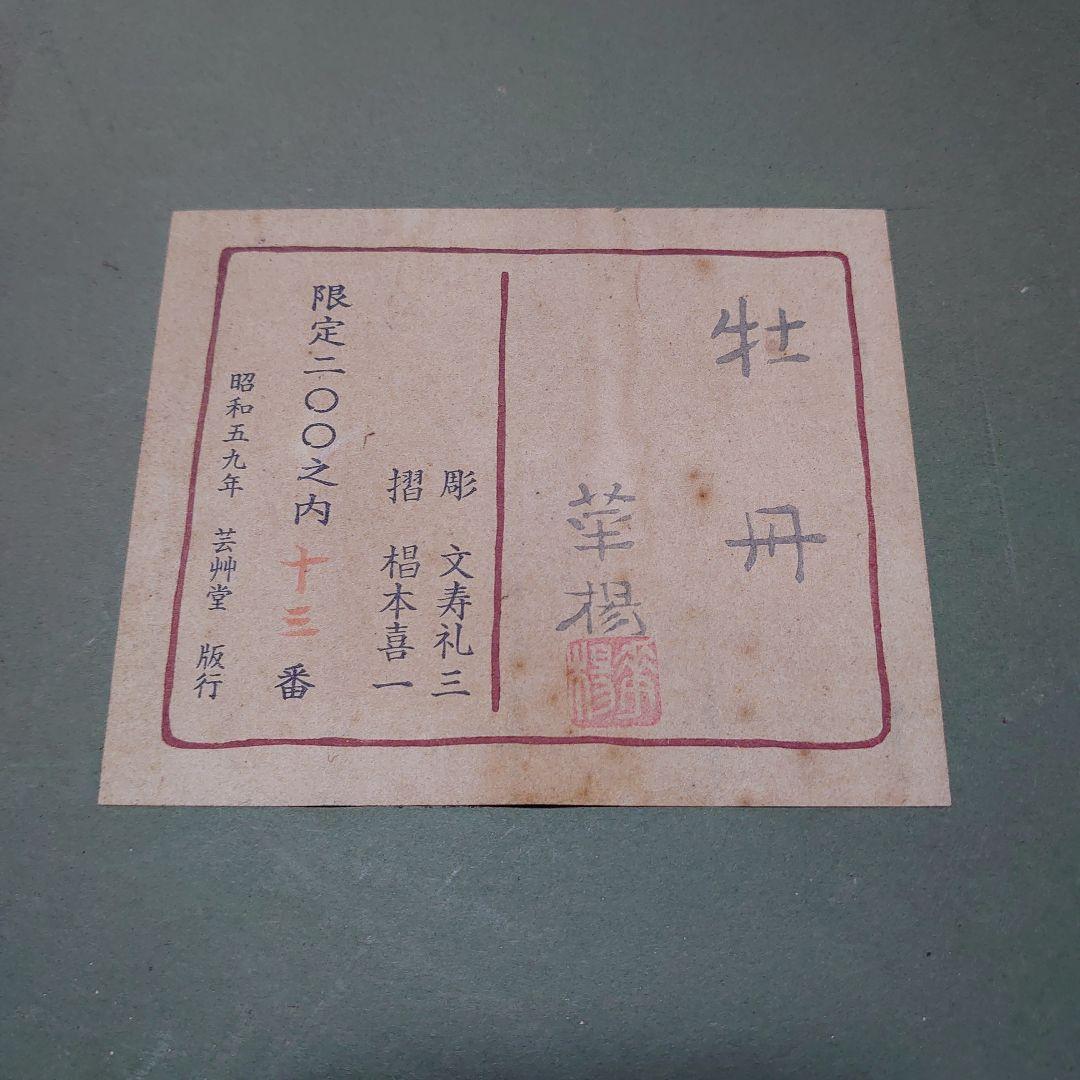 牡丹
華楊
彫 文寿礼三
摺 椙本喜一
限定二〇〇之内 十三 番
昭和五九年 芸艸堂 版行